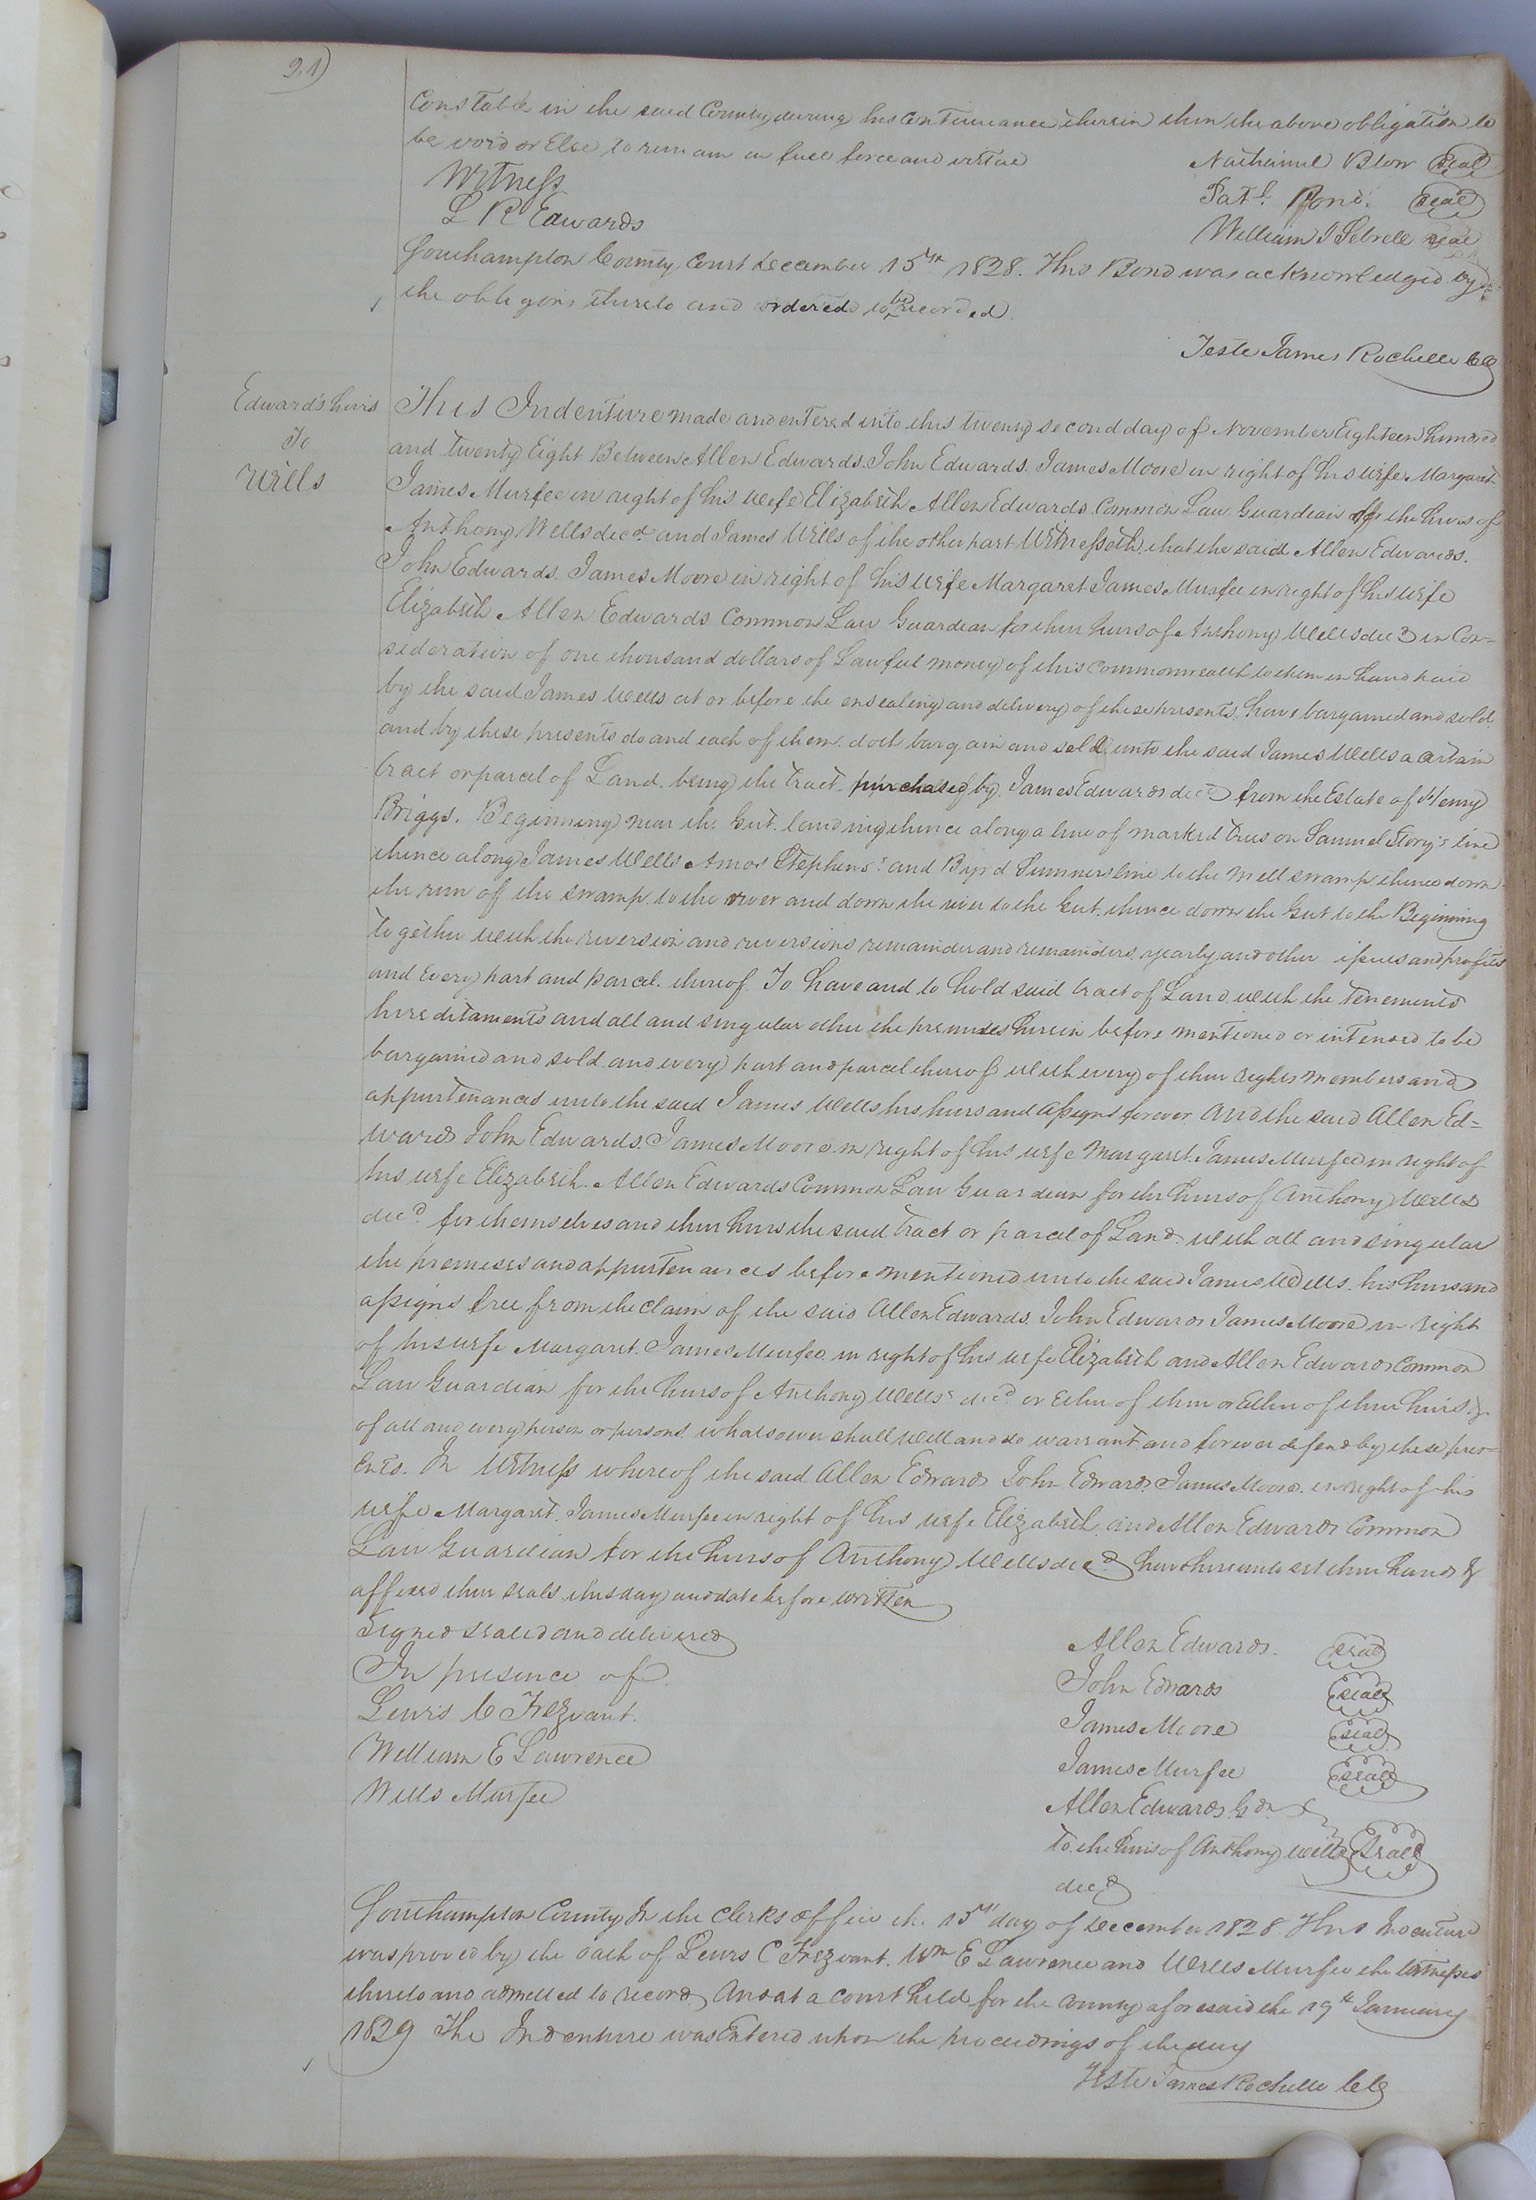 21)
Constable in the said County during his Continuance therein then the above obligation to
be void or Else to remain in full force and virtue
Nathaniel Blow seal
Witness
Pat.
seal
L R Edwards
William J Sebrell seal
Southampton County Court December 15th 1828. This Bond was acknowledged by
the obligors thereto and ordered to be recorded
Teste James Rochelle
Edwards heirs
To
Wills
This Indenture made and entered into this twenty second day of November Eighteen hundred
and twenty Eight Between Allen Edwards. John Edwards. James Moore in right of his wife Margaret
James Murfee in right of his wife Elizabeth Allen Edwards Common Law Guardian for the heirs of
Anthony Wells decd and James Wills of the other part Witnesseth, that the said Allen Edwards.
John Edwards. James Moore in right of his wife Margaret James Murfee in right of his wife
Elizabeth Allen Edwards Common Law Guardian for the heirs of Anthony Wells decd in Con=
sideration of one thousand dollars of Lawful money of this Commonwealth to them in hand paid
by the said James Wells at or before the ensealing and delivery of these presents, have bargained and sold
and by these presents do and each of them doth bargain and sell unto the said James Wells a certain
tract or parcel of Land being the tract purchased by James Edwards decd from the Estate of Henry
Briggs. Beginning near the Gut landing thence along a line of marked trees on Samuel Story's line
thence along James Wells Amos Stephens' and Byrd Sumners line to the Mill swamp thence down
the run of the swamp to the river and down the river to the Gut, thence down the Gut to the Beginning
together with the reversion and reversions remainder and remainders, yearly and other issues and profits
and Every part and parcel thereof To have and to hold said tract of Land with the tenements
hereditaments and all and singular other the premises herein before mentioned or intended to be
bargained and sold and every part and parcel thereof with every of their rights members and
appurtenances unto the said James Wells his heirs and assigns forever And the said Allen Ed=
wards John Edwards. James Moore in right of his wife Margaret. James Murfee in right of
his wife Elizabeth. Allen Edwards Common Law Guardian for the heirs of Anthony Wells
decd. for themselves and their heirs the said tract or parcel of Land with all and singular
the premises and appurtenances before mentioned unto the said James Wells his heirs and
assigns free from the claim of the said Allen Edwards. John Edwards James Moore in right
of his wife Margaret. James Murfee in right of his wife Elizabeth and Allen Edwards Common
Law Guardian for the heirs of Anthony Wells decd or Either of them or Either of their heirs &
of all and every person or persons whatsoever shall will and do warrant and forever defend by these pres=
ents. In Witness whereof the said Allen Edwards John Edwards James Moore in right of his
wife Margaret. James Murfee in right of his wife Elizabeth and Allen Edwards Common
Law Guardian for the heirs of Anthony Wells decd have hereunto set their hands &
affixed their seals this day and date before written
Signed sealed and delivered
Allen Edwards. seal
In presence of
John Edwards seal
Lewis C Trezvant.
James Moore seal
William E Lawrence
James Murfee seal
Wills Murfee
Allen Edwards Gdn
to the heirs of Anthony Wells seal
decd
Southampton County In the Clerks office the 15th day of December 1828 This Indenture
was proved by the oath of Lewis C Trezvant. Wm E Lawrence and Wills Murfee the Witnesses
thereto and admitted to record And at a court held for the County aforesaid the 19th January
1829 The Indenture was Entered upon the proceedings of the day
Teste James Rochelle